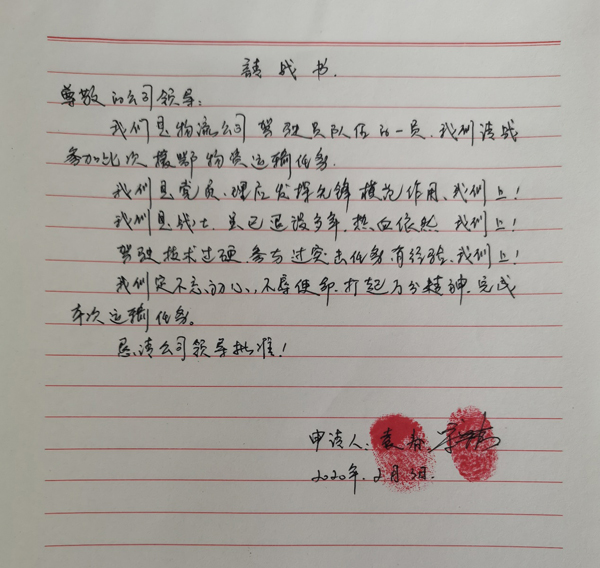 請战书.
尊敬的公司领导:
我们是物流公司驾驶员队伍的一员.我们请战
参加此次援鄂物资运输任务.
我们是党员.理应发挥先锋模范作用、我们上!
我们是战士.虽已退役多年.热血依然.我们上!
驾驶技术过硬.参与过突击任务有经验.我们上!
我们定不忘初心,不辱使命.打起万分精神.完成
本次运输任务。
恳请公司领导批准!
申请人: 袁春
2020年.2月 日.